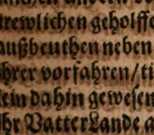 trewlichen geholffe
außbeuthen neben
hrer vorfahren/ ti
ein dahin gewesen
hr VatterLande so